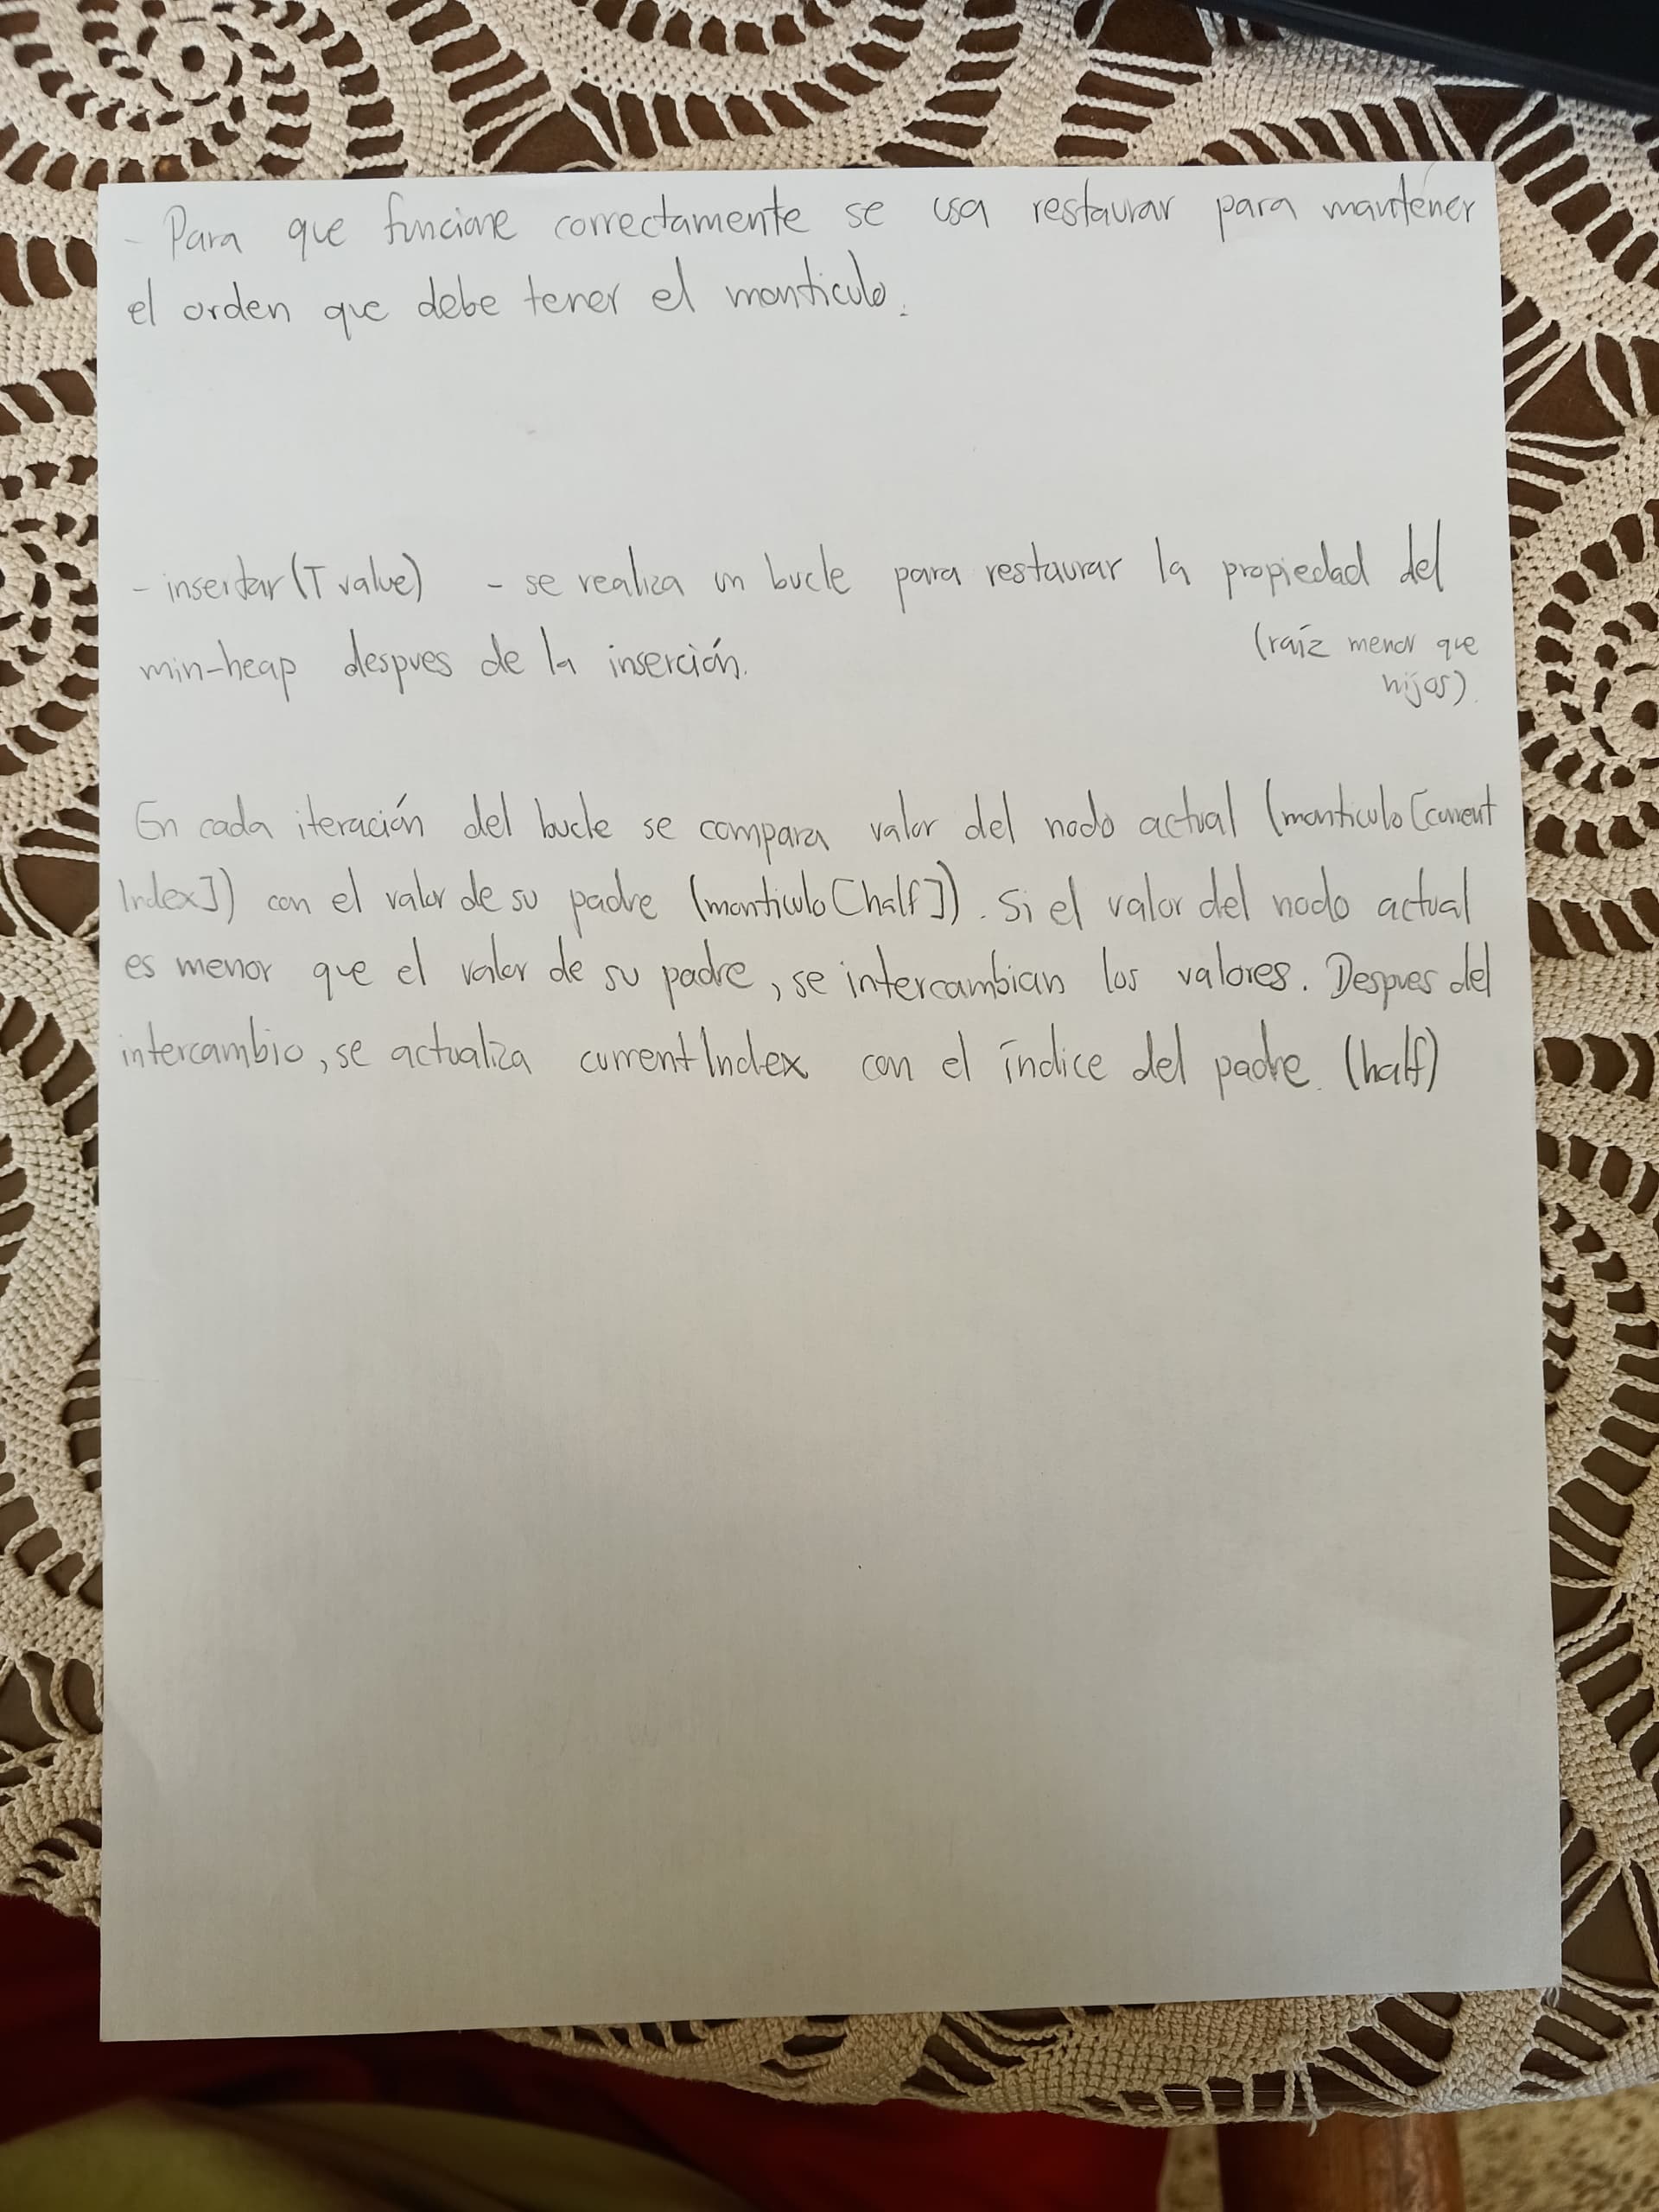 - Para que funcione correctamente se usa restaurar para mantener
el orden que debe tener el monticulo.
- insertar (T value) - se realiza un bucle para restaurar la propiedad del
min-heap despues de la inserción.
(raíz menor que
hijos).
En cada iteración del bucle se compara valor del nodo actual (monticulo [current
Index]) con el valor de su padre (monticulo [half]). Si el valor del nodo actual
es menor que el valor de su padre, se intercambian los valores. Despues del
intercambio, se actualiza currentIndex con el índice del padre. (half)